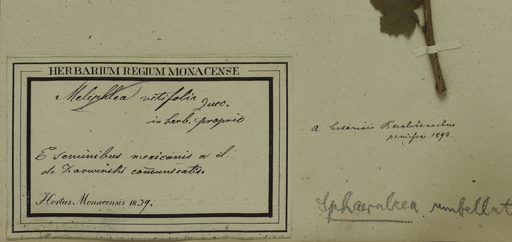 HERBARIUM REGIUM MONACENSE
Meliphlea vitifolia Zucc.
in herb. proprio
E seminibus mexicanis a cl.
de Karwinski communicatis.
Hortus Monacensis 1839.
a botanicis Berolinensibus
remissa 1893
Sphaeralcea umbellat